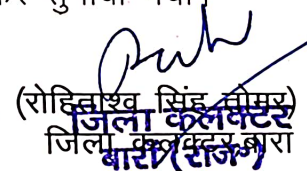 (रोहिताश्व सिंह तोमर)
जिला कलक्टर
जिला कलक्टर बारां
बारां (राज०)